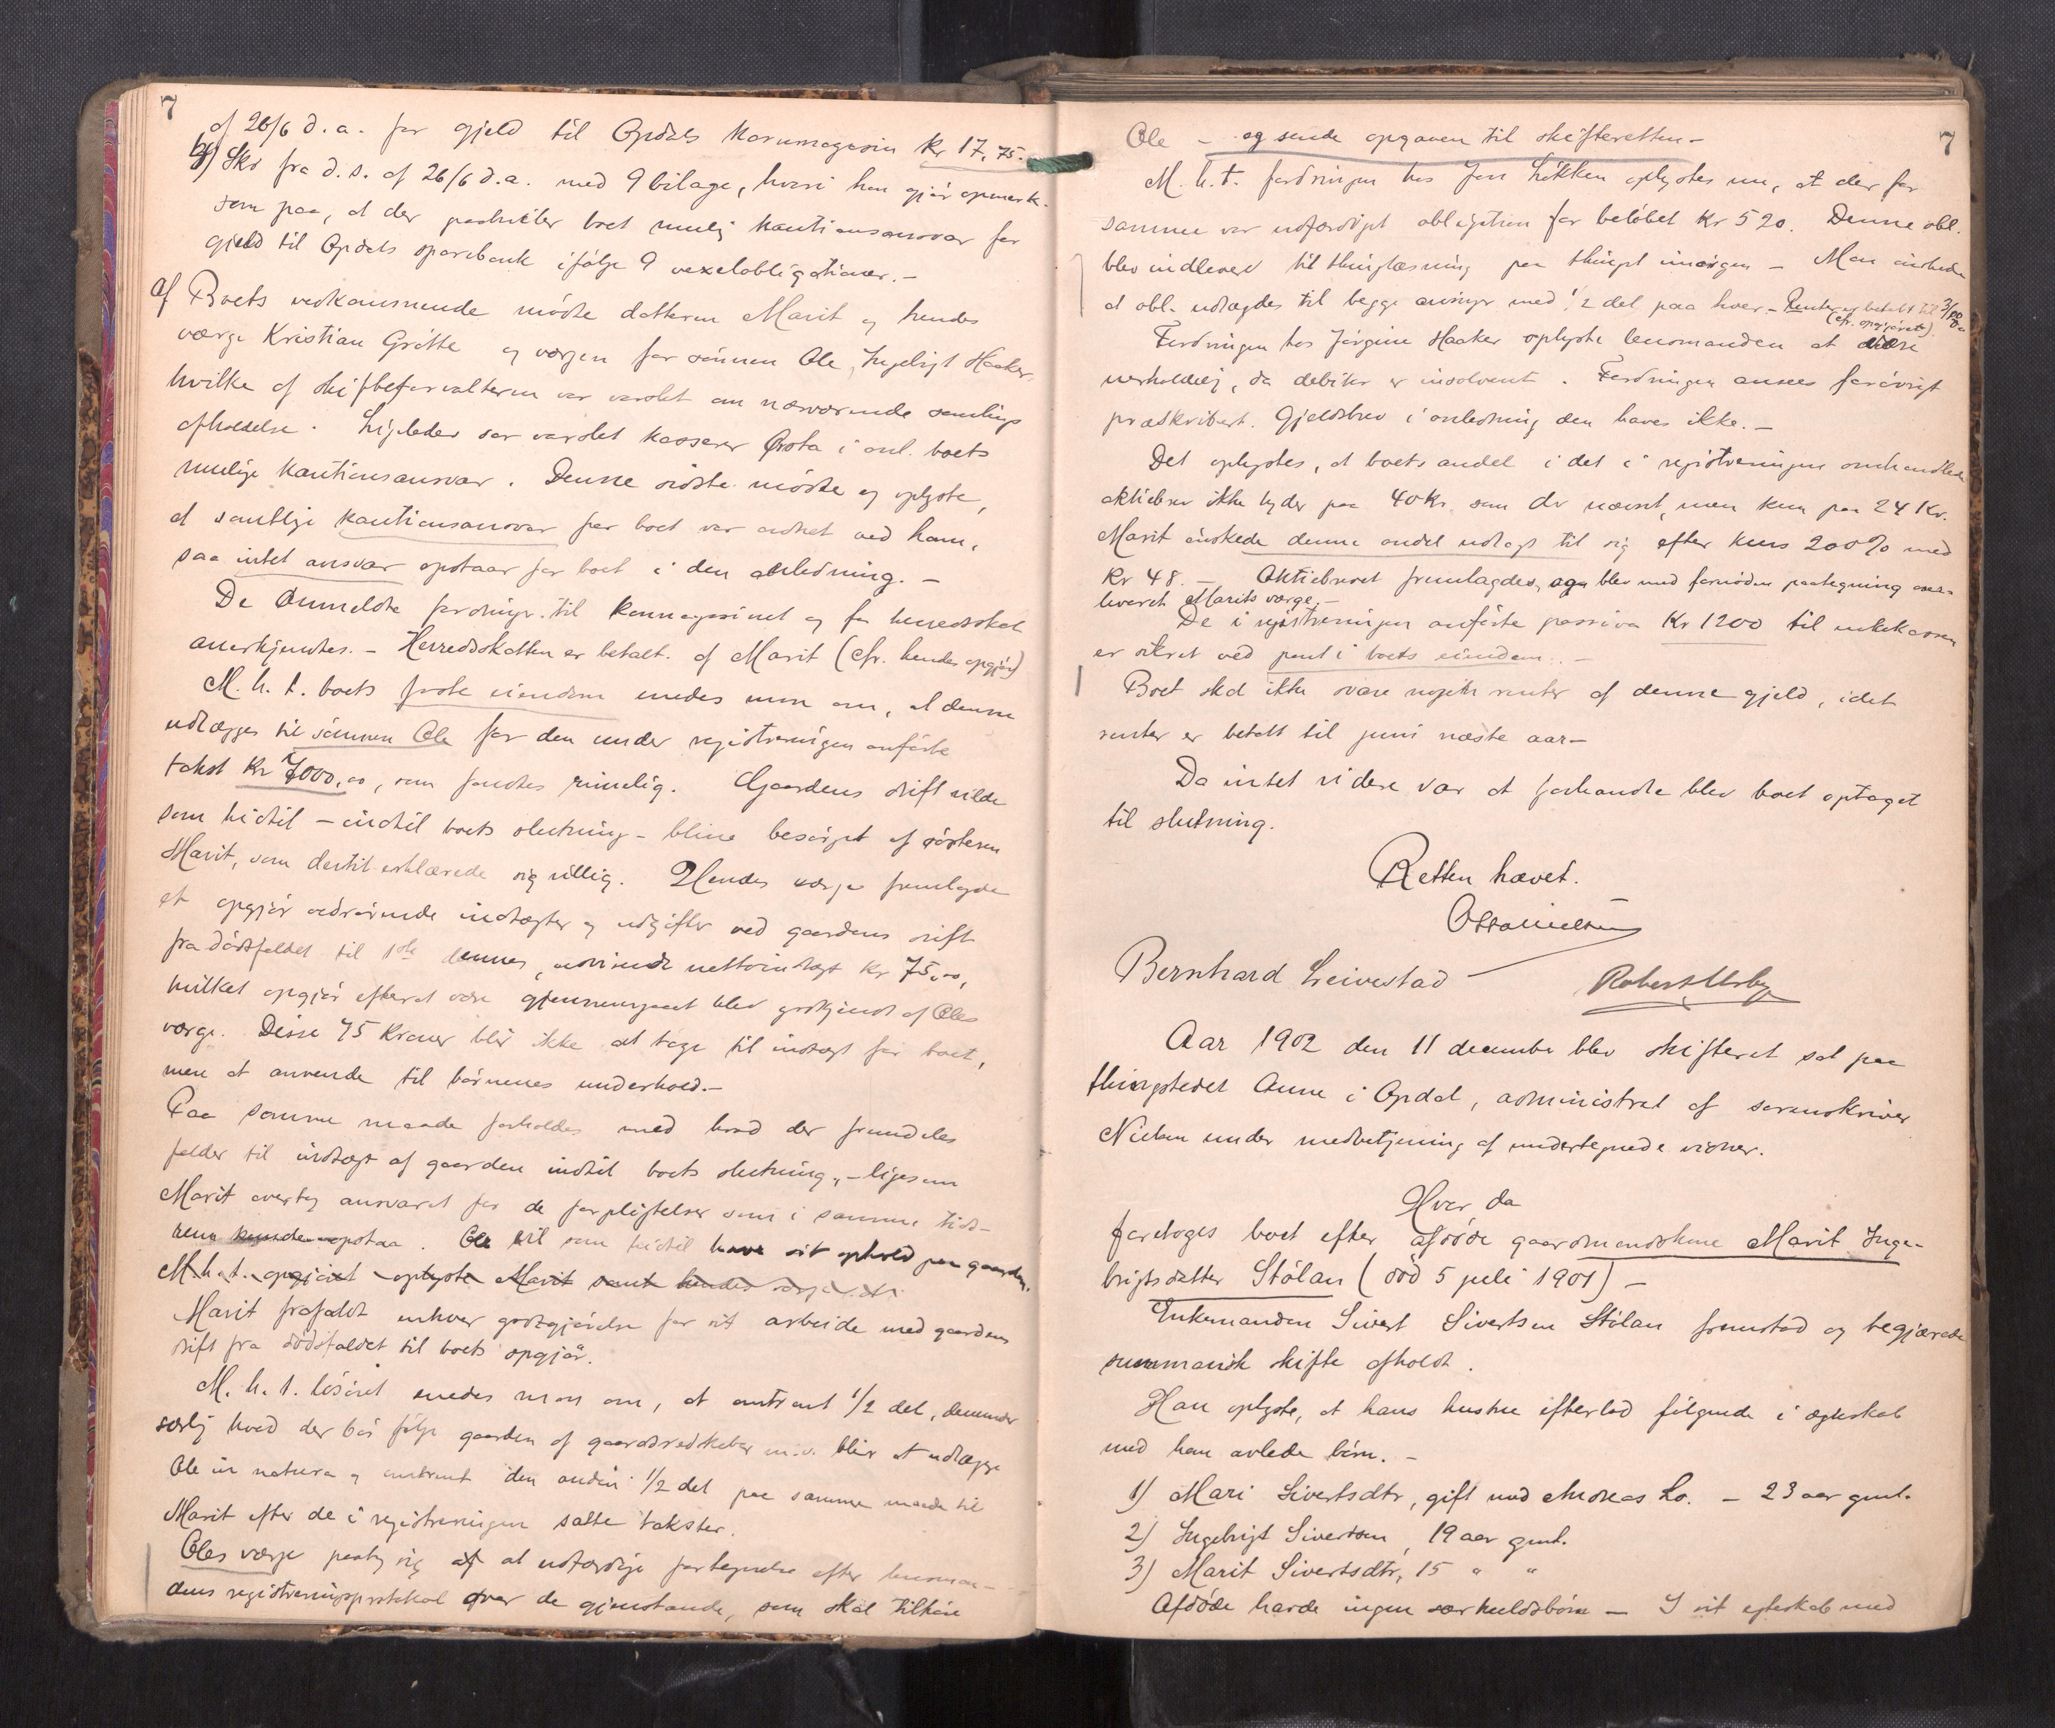 7
af 26/6 d.a. for gjeld til Opdals kornmagasin kr 17,75.
b) Skr fra d.s. af 26/6 d.a. med 9 bilage, hvori han gjør opmerk-
som paa, at der paahviler boet mulig kautionsansvar for
gjeld til Opdals sparebank ifølge 9 vexelobligationer. -
Af Boets vedkommende mødte datteren Marit og hendes
værge Kristian Grøtte og værgen for sønnen Ole, Ingebrigt Haaker,
hvilke af skifteforvalteren var varslet om nærværende samlings
afholdelse. Ligeledes var varslet kasserer Ørsta i anl. boets
mulige kautionsansvar. Denne sidste mødte og oplyste,
at samtlige kautionsansvar for boet var ordnet ved ham,
saa intet ansvar opstaar for boet i den anledning. -
De anmeldte fordringer til kornmagasinet og for herredsskat
anerkjendtes. - Herredsskatten er betalt af Marit (cfr. hendes opgjør)
M.h.t. boets faste eiendom enedes man om, at denne
udlægges til sønnen Ole for den under registreringen anførte
takst kr 7000,00, som fandtes rimelig. Gaardens drift vilde
som hidtil - indtil boets slutning - blive besørget af søsteren
Marit, som dertil erklærede sig villig. Hendes værge fremlagde
et opgjør vedrørende indtægter og udgifter ved gaardens drift
fra dødsfaldet til 1ste dennes, udvisende nettoindtægt kr 75,00,
hvilket opgjør efterat være gjennemgaaet blev godkjendt af Oles
værge. Disse 75 Kroner blir ikke at tage til indtægt for boet,
men at anvende til børnenes underhold. -
Paa samme maade forholdes med hvad der fremdeles
falder til indtægt af gaarden indtil boets slutning, - ligesom
Marit overtog ansvaret for de forpligtelser som i samme tids-
rum kunde opstaa. Ole vil som hidtil have sit ophold paa gaarden.
M.h.t. opgjøret oplyste Marit samt hendes værge
Marit frafaldt enhver godtgjørelse for sit arbeide med gaardens
drift fra dødsfaldet til boets opgjør.
M.h.t. løsøret enedes man om, at omtrent 1/2 del, derunder
særlig hvad der bør følge gaarden af gaardsredskaber m.v. blir at udlægge
Ole in natura og omtrent den anden 1/2 del paa samme maade til
Marit efter de i registreringen satte takster.
Oles værge paatog sig at udfærdige fortegnelse efter lensman-
dens registreringsprotokol over de gjenstande, som skal tilhøre
7
Ole - og sende opgaven til skifteretten -
M.h.t. fordringen hos Jon Løkken oplystes nu, at der for
samme var udfærdiget obligation for beløbet kr 520. Denne obl.
blev indleveret til thinglæsning paa thinget imorgen - Man enedes
at obl. udlægdes til begge arvinger med 1/2 del paa hver. - Renter er betalt til 3/10
(cfr. opgjøret)
Fordringen hos Jørgine Haaker oplyste lensmanden at være
uerholdelig, da debitor er insolvent. Fordringen ansees forøvrigt
præskribert. Gjeldsbrev i anledning den haves ikke. -
Det oplystes, at boets andel i det i registreringen omhandlede
aktiebrev ikke lyder paa 40 Kr, som der nævnt, men kun paa 24 Kr.
Marit ønskede denne andel udlagt til sig efter kurs 200% med
Kr 48. - Aktiebrevet fremlagdes, og blev med fornøden paategning over-
leveret Marits værge. -
De i registreringen anførte passiva Kr 1200 til enkekassen
er sikret ved pant i boets eiendom. -
Boet skal ikke svare nogen renter af denne gjeld, idet
renter er betalt til juni næste aar -
Da intet videre var at forhandle blev boet optaget
til slutning.
Retten hævet.
Otto Nielsen
Bernhard Leivestad Robert Ursby
Aar 1902 den 11 december blev skifteret sat paa
thingstedet Aune i Opdal, administrert af sorenskriver
Nielsen under medbetjening af undertegnede vidner.
Hvor da
foretoges boet efter afdøde gaardmandskone Marit Inge-
brigtsdatter Stølan (død 5 juli 1901) -
Enkemanden Sivert Sivertsen Stølan fremstod og begjærede
summarisk skifte afholdt.
Han oplyste, at hans hustru efterlod følgende i ægteskab
med ham avlede børn. -
1) Mari Sivertsdtr, gift med Andreas Lo. - 23 aar gml.
2) Ingebrigt Sivertsen, 19 aar gml.
3) Marit Sivertsdtr, 15 " "
Afdøde havde ingen særkuldsbørn - I sit egteskab med